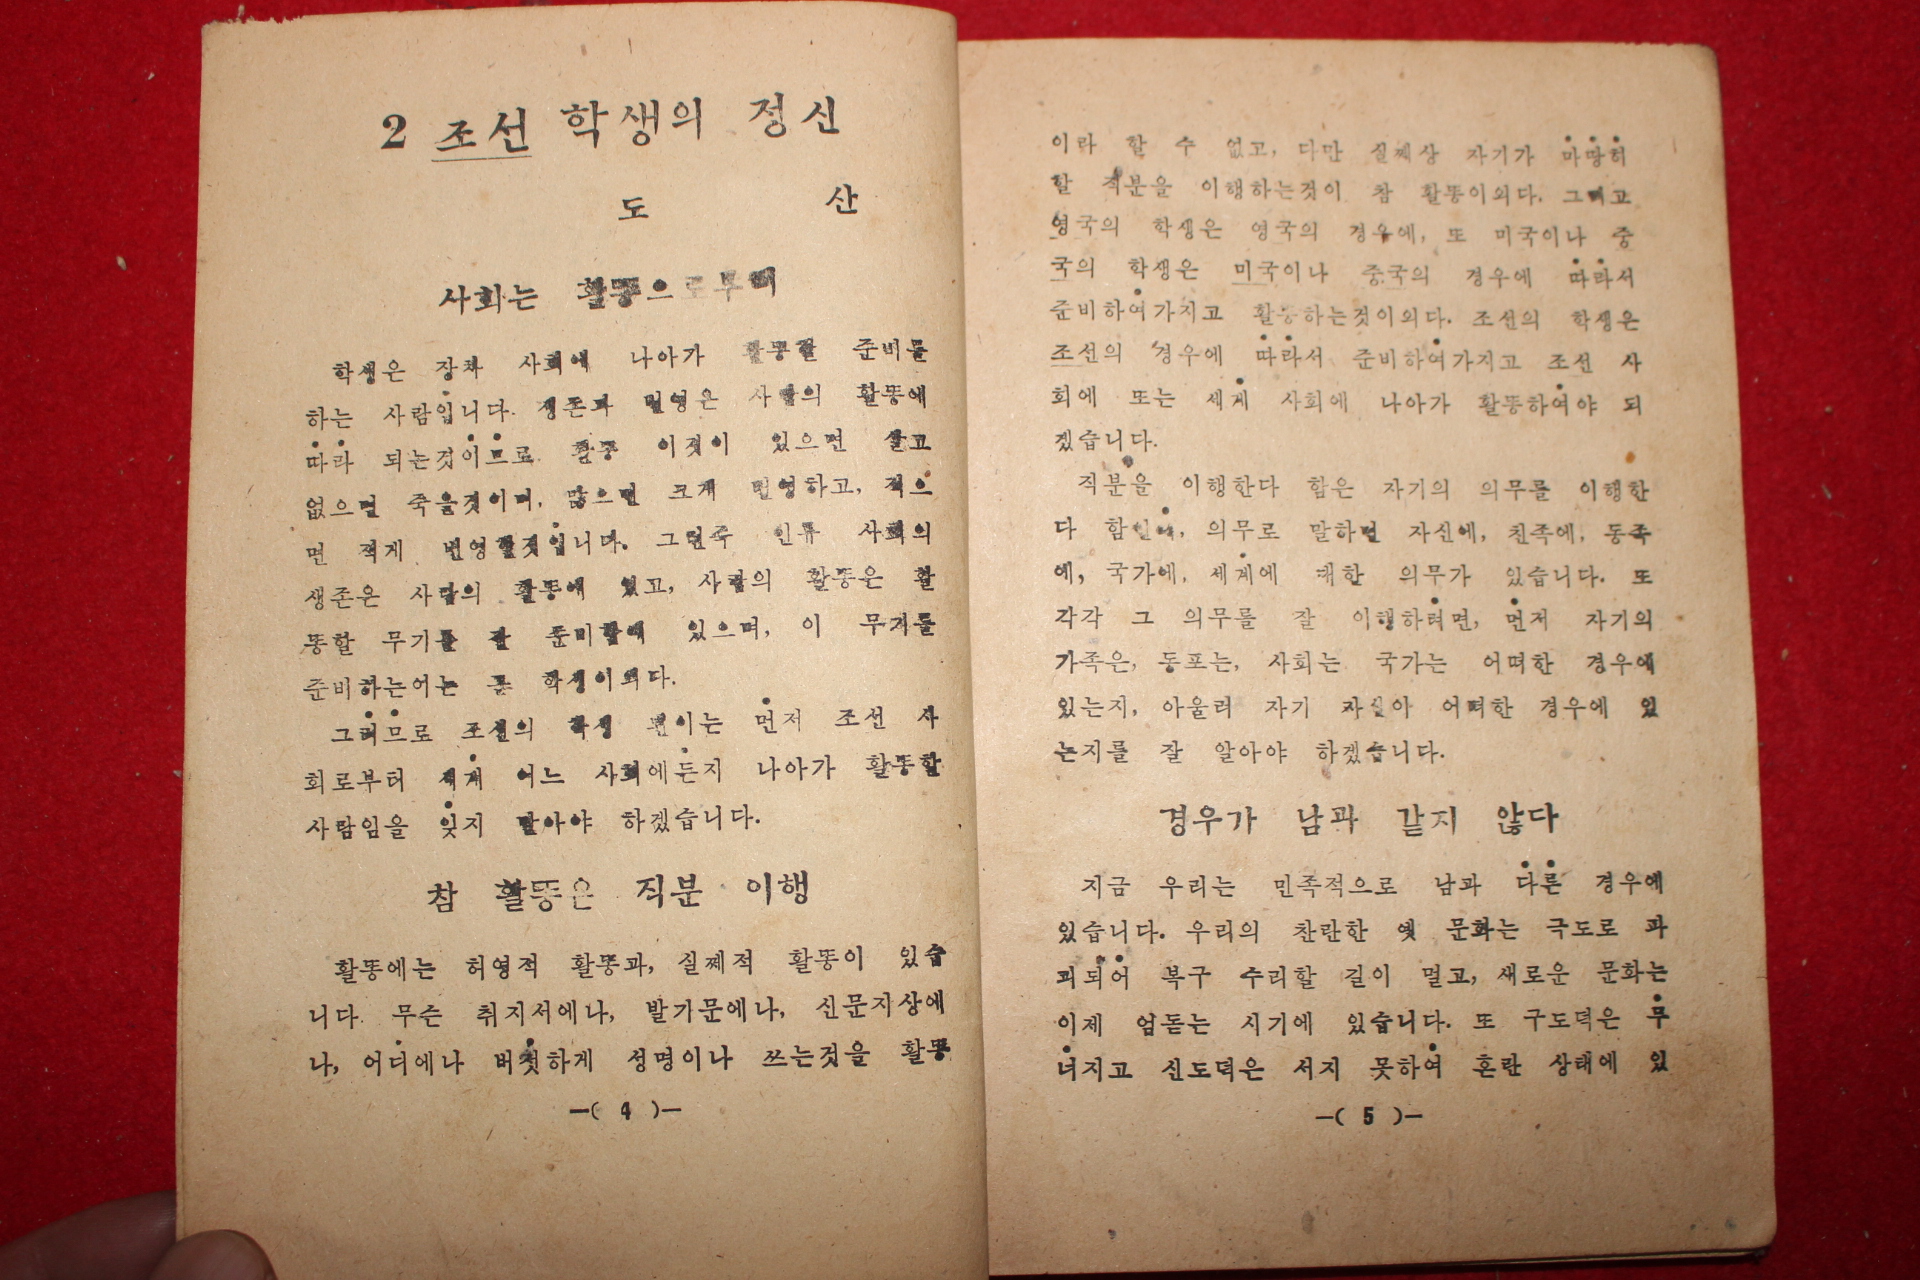 2 조선 학생의 정신
도 산
사회는 활똥으로부터
학생은 장차 사회에 나아가 활똥할 준비를
하는 사람입니다. 생존과 번영은 사람의 활똥에
따라 되는것이므로 활똥 이것이 있으면 살고
없으면 죽을것이며, 많으면 크게 번영하고, 적으
면 적게 번영할것입니다. 그런즉 인류 사회의
생존은 사람의 활똥에 있고, 사람의 활똥은 활
똥할 무기를 잘 준비함에 있으며, 이 무기를
준비하는이는 곧 학생이외다.
그러므로 조선의 학생 된이는 먼저 조선 사
회로부터 세계 어느 사회에든지 나아가 활똥할
사람임을 잊지 말아야 하겠습니다.
참 활똥은 직분 이행
활똥에는 허영적 활똥과, 실쩨적 활똥이 있습
니다. 무슨 취지서에나, 발기문에나, 신문지상에
나, 어디에나 버젓하게 성명이나 쓰는것을 활똥
—( 4 )—
이라 할 수 없고, 다만 실쩨상 자기가 마땅히
할 직분을 이행하는것이 참 활똥이외다. 그리고
영국의 학생은 영국의 경우에, 또 미국이나 중
국의 학생은 미국이나 중국의 경우에 따라서
준비하여가지고 활똥하는것이외다. 조선의 학생은
조선의 경우에 따라서 준비하여가지고 조선 사
회에 또는 세계 사회에 나아가 활똥하여야 되
겠습니다.
직분을 이행한다 함은 자기의 의무를 이행한
다 함인데, 의무로 말하면 자신에, 친족에, 동족
에, 국가에, 세계에 대한 의무가 있습니다. 또
각각 그 의무를 잘 이행하려면, 먼저 자기의
가족은, 동포는, 사회는 국가는 어떠한 경우에
있는지, 아울러 자기 자신아 어떠한 경우에 있
는지를 잘 알아야 하겠습니다.
경우가 남과 같지 않다
지금 우리는 민족적으로 남과 다른 경우에
있습니다. 우리의 찬란한 옛 문화는 극도로 파
괴되어 복구 수리할 길이 멀고, 새로운 문화는
이제 엄돋는 시기에 있습니다. 또 구도덕은 무
너지고 신도덕은 서지 못하여 혼란 상태에 있
—( 5 )—